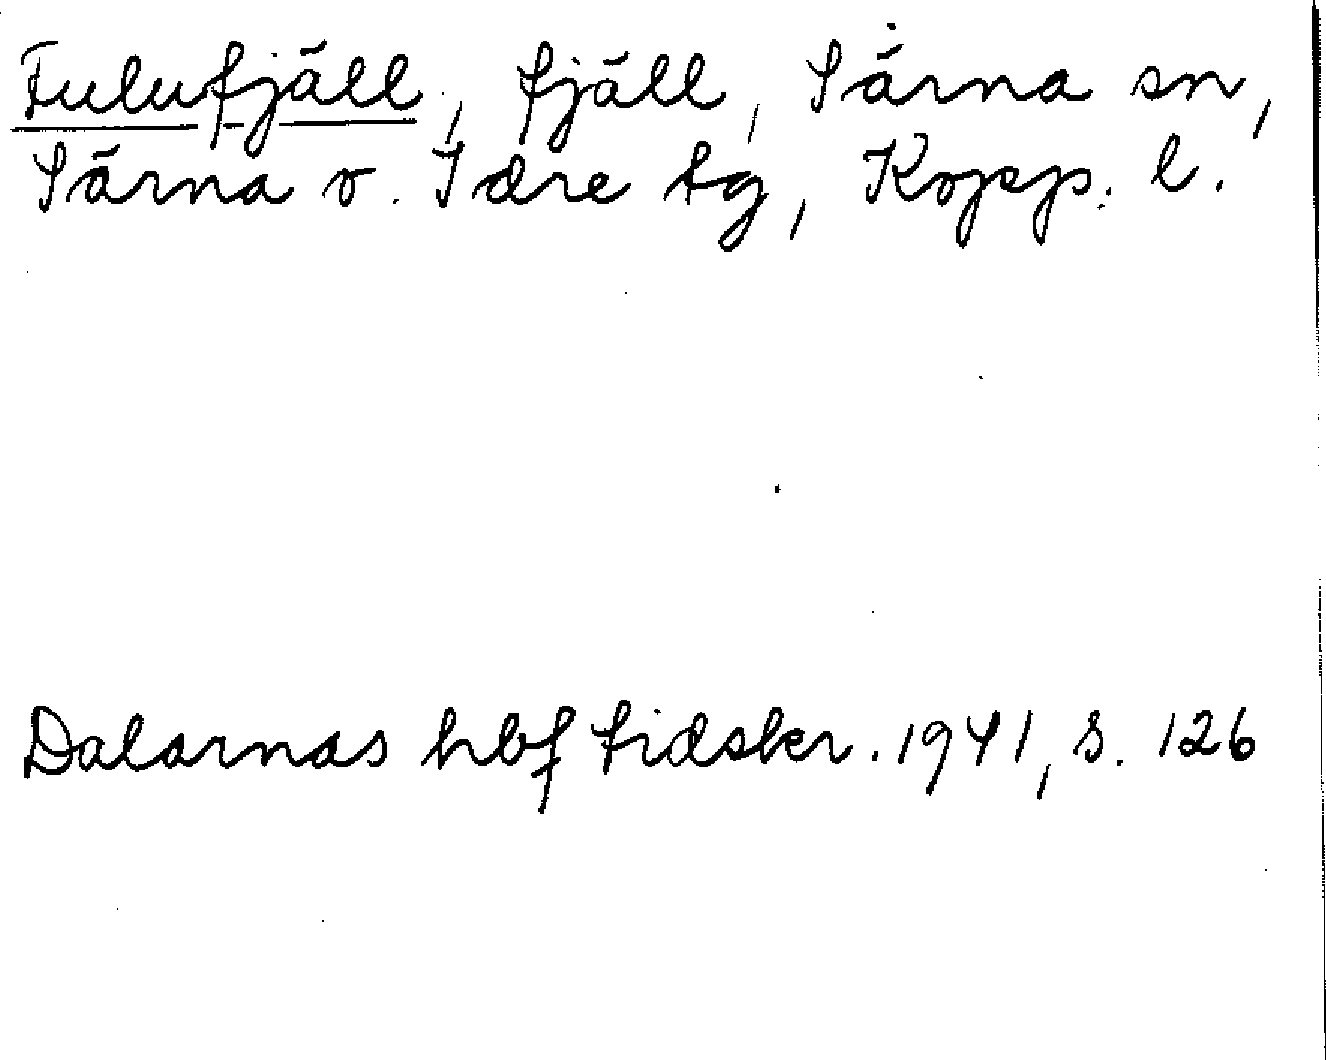 Fulufjäll, fjäll, Särna sn,
Särna o. Idre tg, Kopp. l.
Dalarnas hbf tidskr. 1941, s. 126